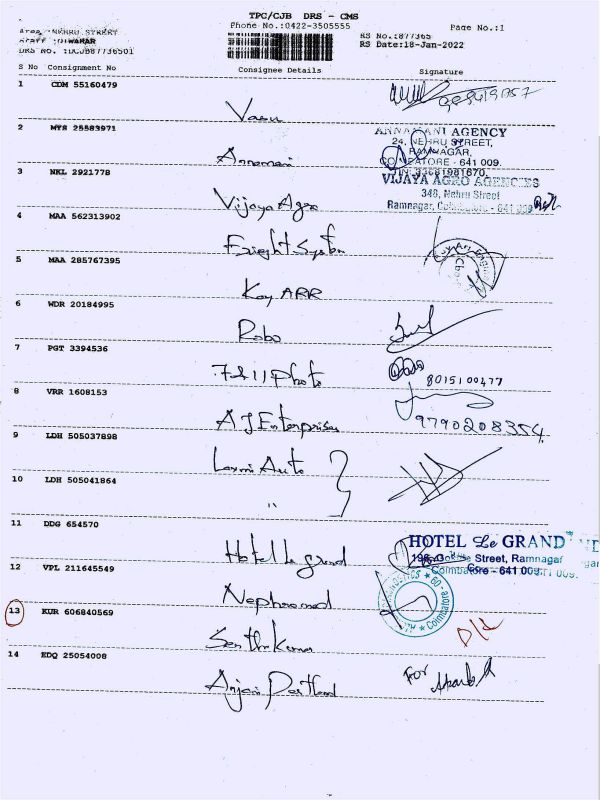 TPC/CJB DRS - CMS
Phone No.:0422-3505555
Page No.:1
Area :NEHRU STREET
RS No.:877365
Staff :DIWAKAR
RS Date:18-Jan-2022
DRS No. :DCJB87736501
S No Consignment No Consignee Details Signature
1 CDM 55160479
Vasu
2 MYS 25583971
ANNAMANI AGENCY
24, NEHRU STREET,
RAMNAGAR,
COIMBATORE - 641 009.
Annamani
3 NKL 2921778
VIJAYA AGRO AGENCIES
348, Nehru Street
Ramnagar, Coimbatore - 641 009
Vijaya Agro
4 MAA 562313902
Freight System
5 MAA 285767395
Kay ARR
6 WDR 20184995
Robo
7 PGT 3394536
7 & 11 Photo
8015100477
8 VRR 1608153
AJ Enterprises
9790208354
9 LDH 505037898
Laxmi Auto
10 LDH 505041864
"
11 DDG 654570
HOTEL Le GRAND
Street, Ramnagar
Coimbatore - 641 009.
Hotel Le grand
12 VPL 211645549
Coimbatore
13 KUR 606840569
D/L
14 EDQ 25054008
For